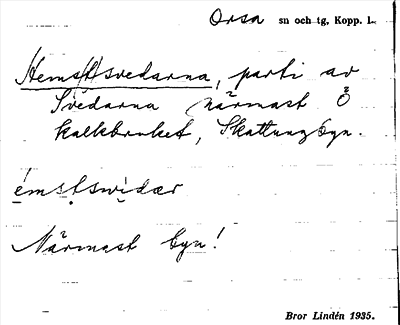 Orsa sn och tg, Kopp. l.
Hems(t)svedarna, parti av
Svedarna närmast Ö
kalkbruket, Skattungbyn.
émstswidær
Närmast byn!
Bror Lindén 1935.